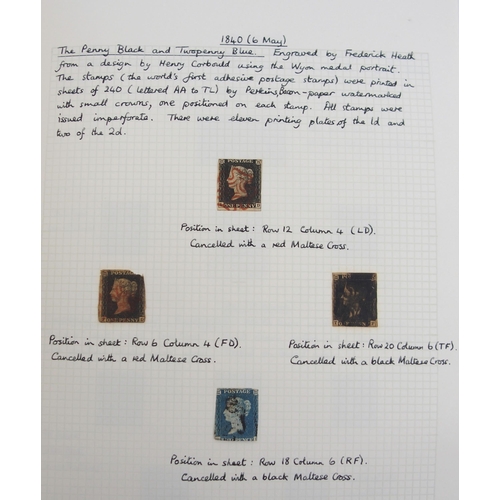 1840 (6 May)
The Penny Black and Twopenny Blue. Engraved by Frederick Heath
from a design by Henry Corbould using the Wyon medal portrait.
The stamps (the world's first adhesive postage stamps) were printed in
sheets of 240 (lettered AA to TL) by Perkins, Bacon - paper watermarked
with small crowns, one positioned on each stamp. All stamps were
issued imperforate. There were eleven printing plates of the 1d and
two of the 2d.
POSTAGE
ONE PENNY
Position in sheet: Row 12 Column 4 (LD).
Cancelled with a red Maltese Cross.
POSTAGE
ONE PENNY
Position in sheet: Row 6 Column 4 (FD)
Cancelled with a red Maltese Cross.
Position in sheet: Row 20 Column 6 (TF)
Cancelled with a black Maltese Cross.
POSTAGE
Position in sheet: Row 18 Column 6 (RF).
Cancelled with a black Maltese Cross.